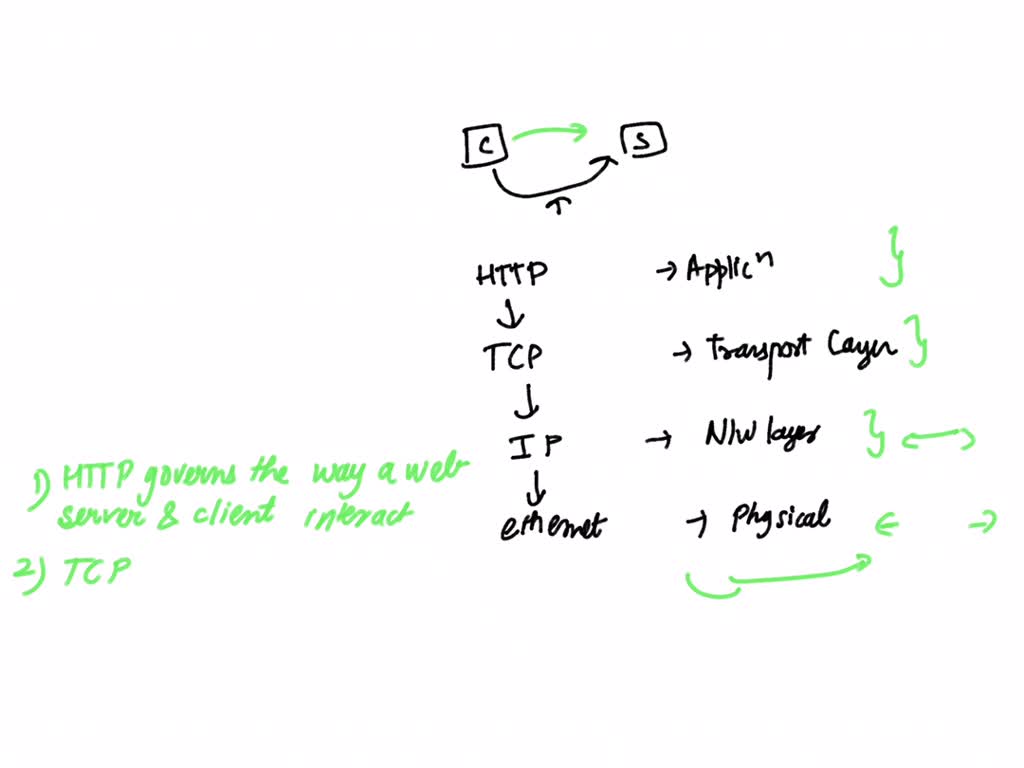 C S
HTTP → Applicⁿ
↓
TCP → Transport Layer
↓
IP → N/W layer
↓
ethernet → Physical
1) HTTP governs the way a web
server & client interact
2) TCP